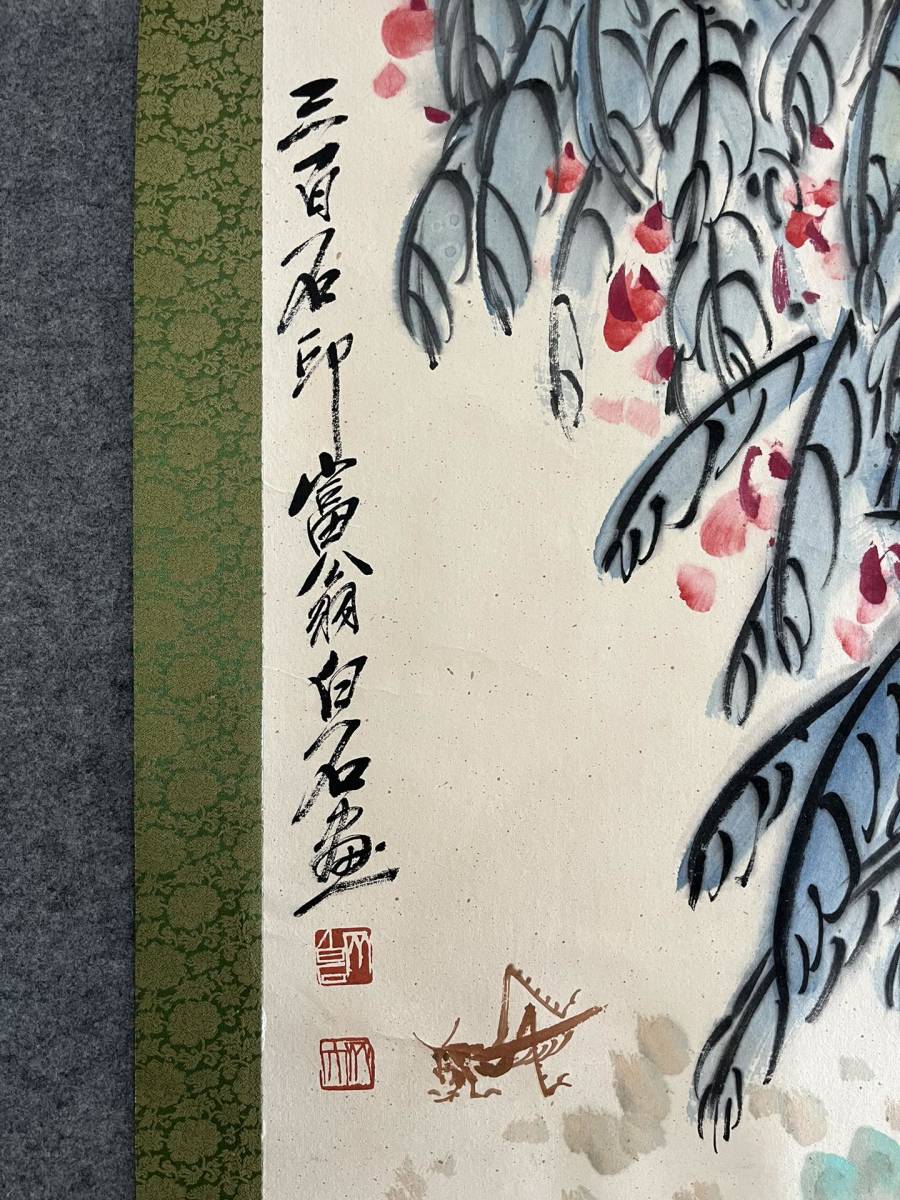 三百石印富翁白石画